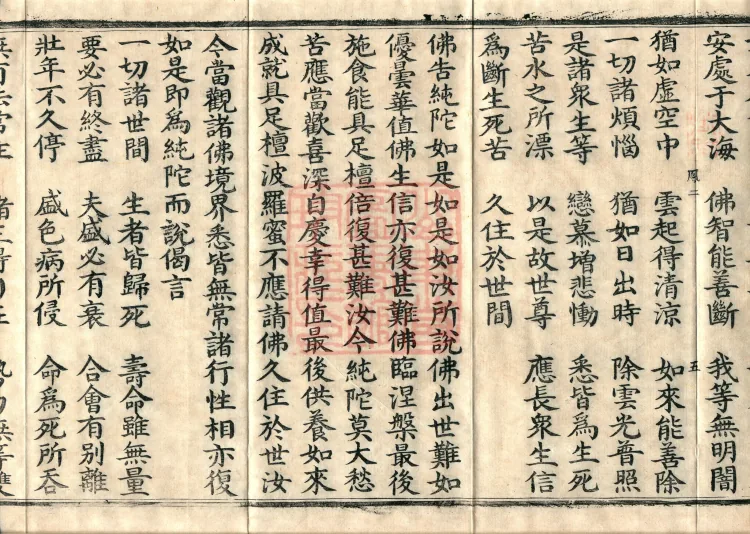 安處于大海　佛智能善斷　我等無明闇
猶如虛空中　雲起得清涼　如來能善除
鳳二　五
一切諸煩惱　猶如日出時　除雲光普照
是諸衆生等　戀慕增悲慟　悉皆爲生死
苦水之所漂　以是故世尊　應長衆生信
爲斷生死苦　久住於世間
佛告純陀如是如是如汝所說佛出世難如
優曇華值佛生信亦復甚難佛臨涅槃最後
施食能具足檀倍復甚難汝今純陀莫大愁
苦應當歡喜深自慶幸得值最後供養如來
成就具足檀波羅蜜不應請佛久住於世汝
今當觀諸佛境界悉皆無常諸行性相亦復
如是即爲純陀而說偈言
一切諸世間　生者皆歸死　壽命雖無量
要必有終盡　夫盛必有衰　合會有別離
壯年不久停　盛色病所侵　命爲死所吞